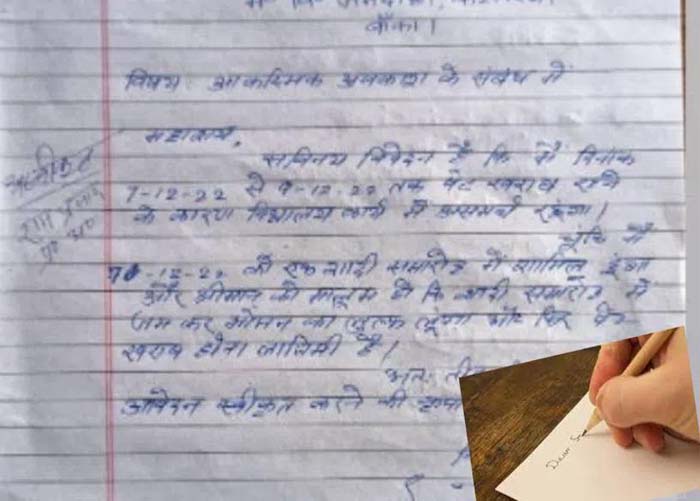 बाँका।
विषय: आकस्मिक अवकाश के संबंध में
महाशय,
सविनय निवेदन है कि मैं दिनांक
7-12-22 से 9-12-22 तक पेट खराब रहने
के कारण विद्यालय कार्य में असमर्थ रहूंगा।
चूंकि मैं
-12-22 को एक शादी समारोह में शामिल हूंगा
और श्रीमान को मालूम हो कि शादी समारोह में
जम कर भोजन का लुत्फ लूंगा और फिर पेट
खराब होना लाजिमी है।
अतः
आवेदन स्वीकृत करने की कृपा
अस्वीकृत
Dear